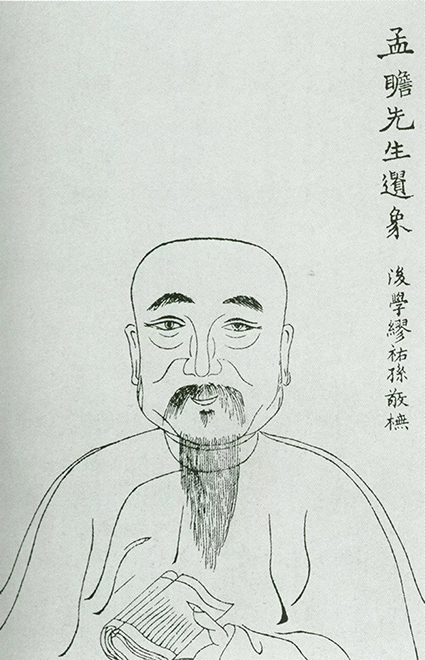 孟瞻先生遺象
後學繆祐孫敬橅